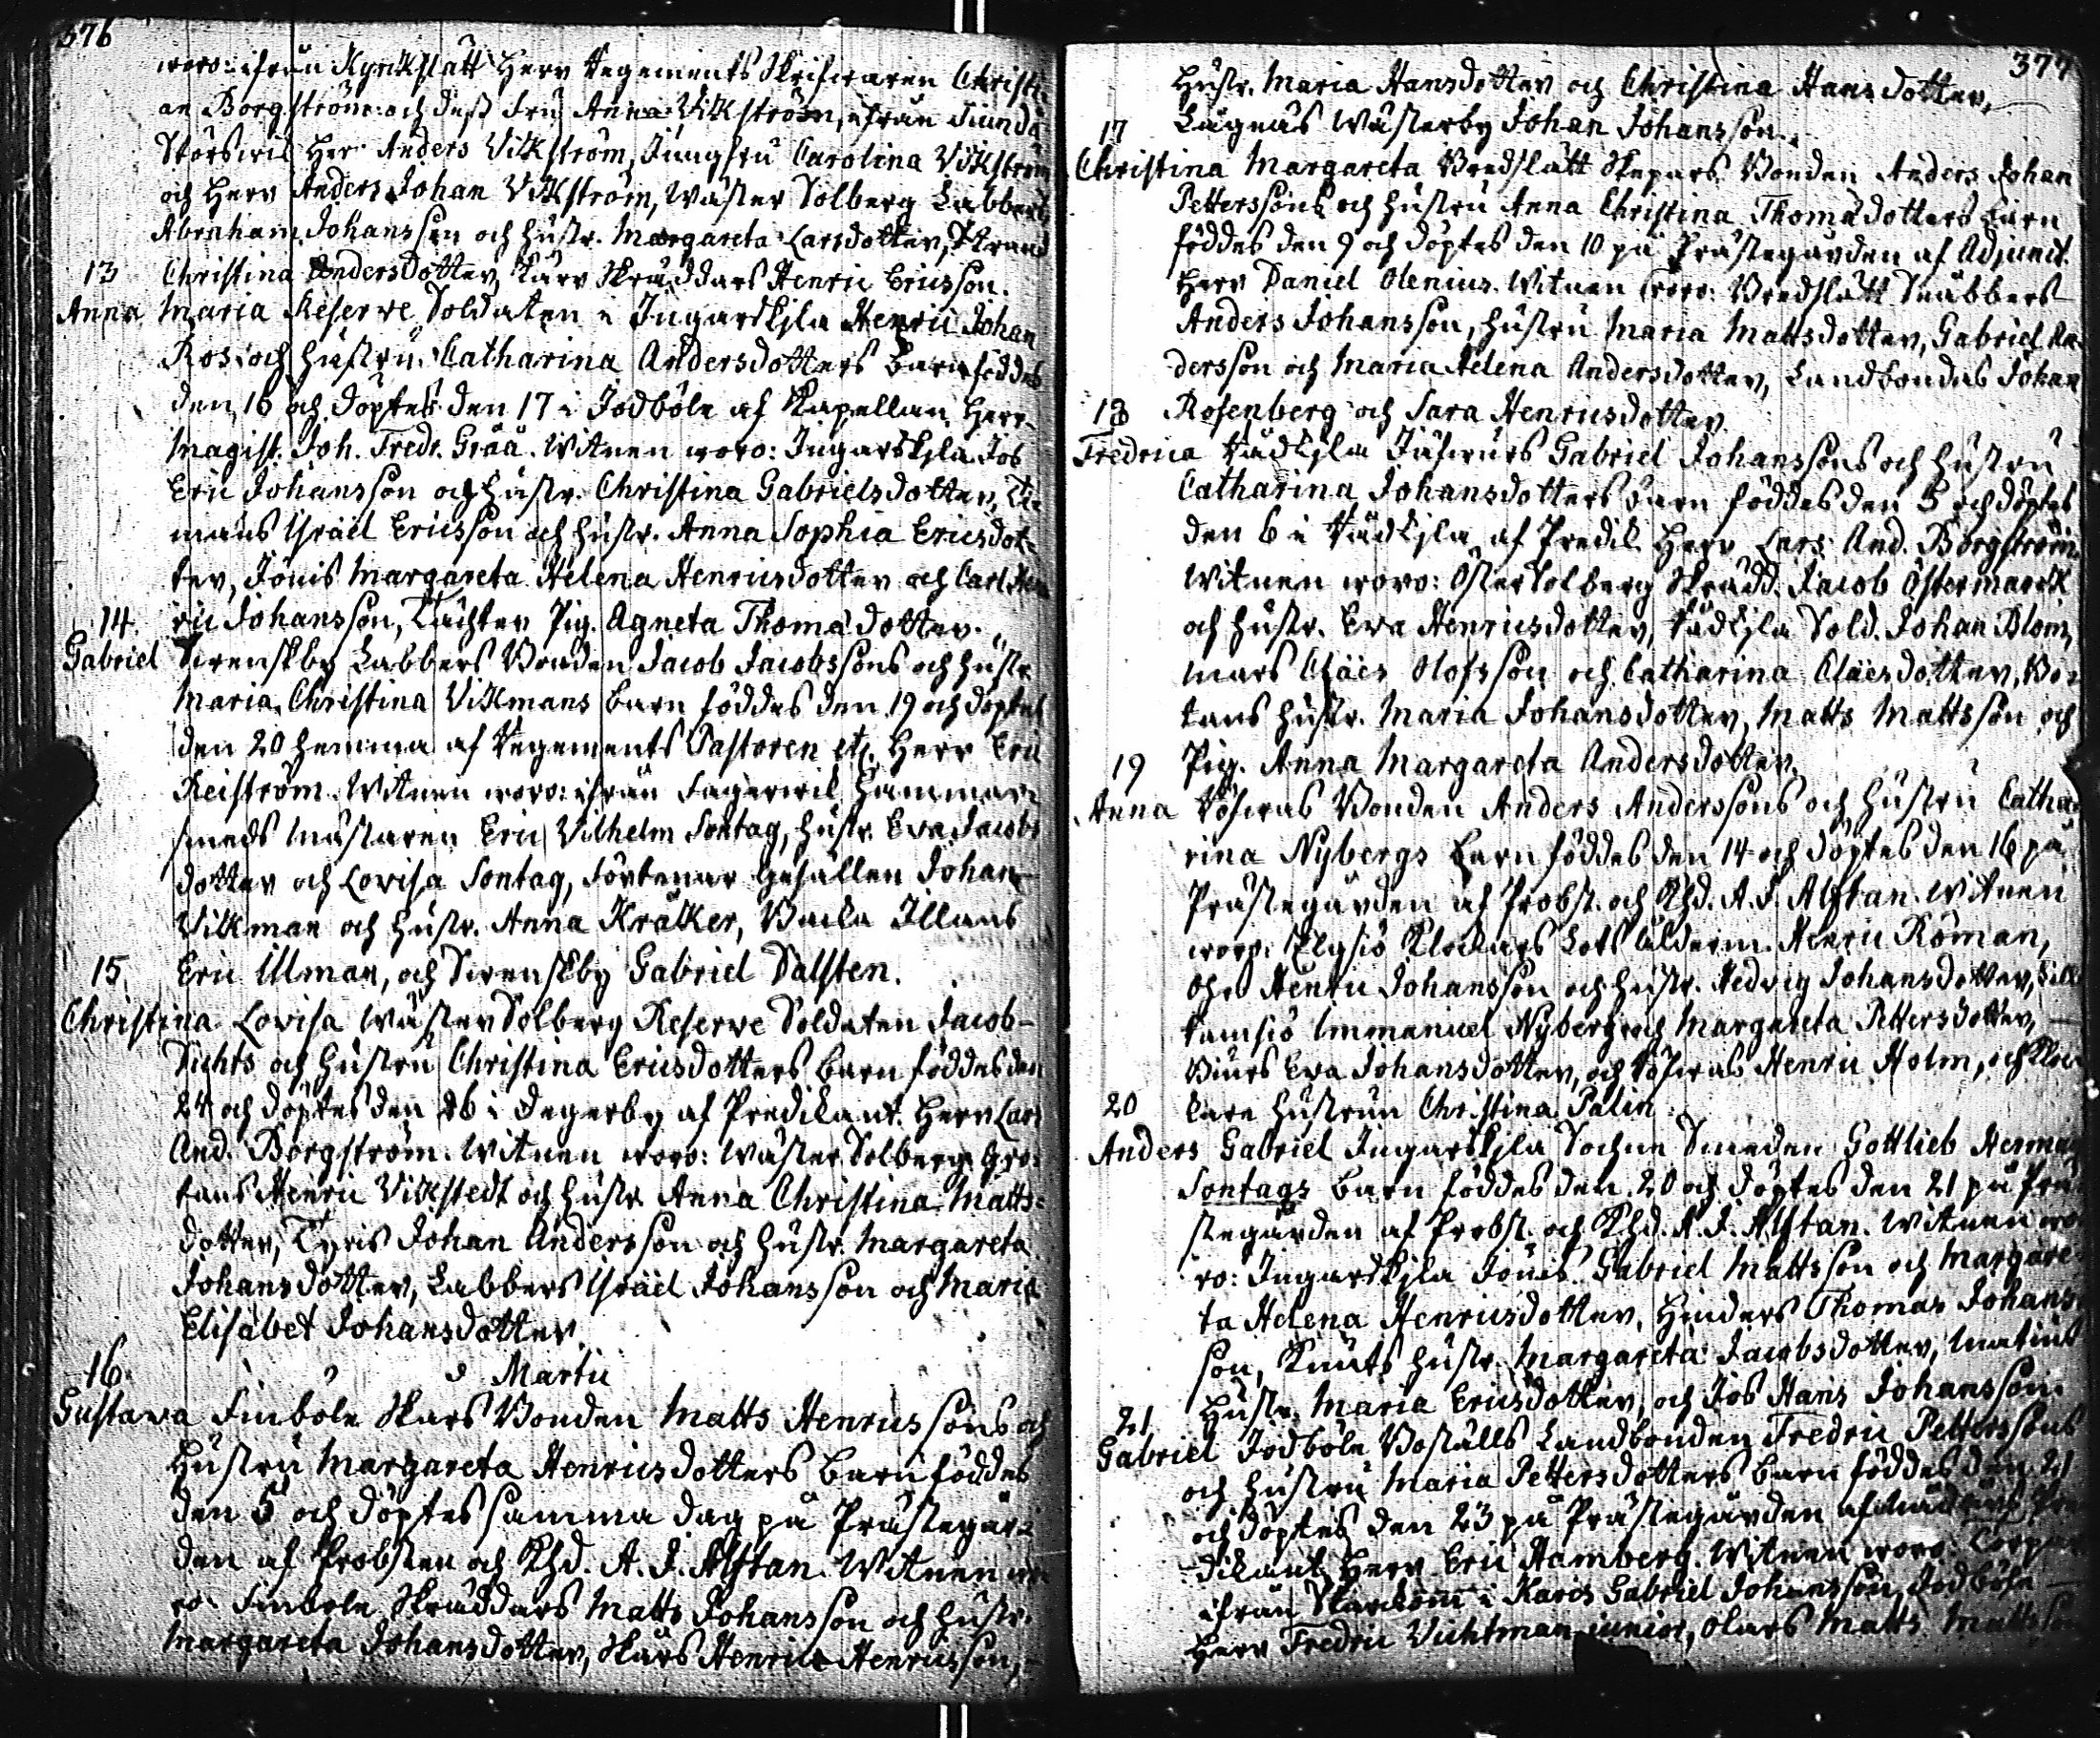 376
woro: ifrån Kyrkslätt Herr Regements Skrifwaren Christi-
an Borgström och dess Fru Anna Vikström, ifrån Siundå
Störswik Herr Anders Vikström, Jungfru Carolina Vikström
och Herr Anders Johan Vikström, Wäster Solberg Labbers
Abraham Johansson och hustr. Margareta Larsdotter, Strand
13 Christina Andersdotter, Skräddars Henric Ericsson.
Anna Maria Reserve Soldaten i Ingarskila Henric Johan
Ros och hustru Catharina Andersdotters barn föddes
den 16 och döptes den 17 i Jodböle af Kapellan Herr
Magist. Joh. Fredr. Gråå. Witnen woro: Ingarskila Jos
Eric Johansson och hustr. Christina Gabrielsdotter,
mans Israel Ericsson och hustr. Anna Sophia Ericsdot-
ter, Jonis Margareta Helena Henricsdotter och Carl Hen-
14 ric Johansson, Täckter Pig. Agneta Thomædotter.
Gabriel Swenskby Labbers Bonden Jacob Jacobssons och hustr.
Maria Christina Vikmans barn föddes den 19 och döptes
den 20 hemma af Regements Pastoren etc. Herr Eric
Reiström. Witnen woro: ifrån Fagerwik Hammar-
smeds Mästaren Eric Vilhelm Sontag, hustr. Eva Jacobs
dotter och Lovisa Sontag, Gesällen Johan
Vikman och hustr. Anna Kräker, Backa Illans
15 Eric Illman, och Swenskby Gabriel Salsten.
Christina Lovisa Wäster Solberg Reserve Soldaten Jacob
Dichts och hustru Christina Ericsdotters barn föddes den
24 och döptes den 26 i Degerby af Predikant. Herr Lars
And. Borgström. Witnen woro: Wäster Solberg Gro-
tans Henric Vikstedt och hustr. Anna Christina Matts-
dotter, Tyris Johan Andersson och hustr. Margareta
Johansdotter, Labbers Israel Johansson och Maria
Elisabet Johansdotter
16 d Martii
Gustava Finböle Skars Bonden Matts Henricssons och
Hustru Margareta Henricsdotters barn föddes
den 5 och döptes samma dag på Prästegår-
den af Probsten och Khd. A. J. Alftan. Witnen wo-
ro Finböle Skräddars Matts Johansson och hustr.
Margareta Johansdotter, Skärs Henric Henricsson,
377
Hustr. Maria Hansdotter och Christina Hansdotter,
17 Lågnäs Wästerby Johan Johansson.
Christina Margareta Bredslätt Skepars Bonden Anders Johan
Petterssons och hustru Anna Christina Thomædotters barn
föddes den 9 och döptes den 10 på Prästegården af Adjunct.
Herr Daniel Olenius. Witnen woro: Bredslätt Snäbbers
Anders Johansson, hustru Maria Mattsdotter, Gabriel An-
dersson och Maria Helena Andersdotter, Landbondes Johan
18 Rosenberg och Sara Henricsdotter
Fredrica Rådkila Gabriel Johanssons och hustru
Catharina Johansdotters barn föddes den 5 och döptes
den 6 i Rådkila af Predik. Herr Lars And. Borgström
Witnen woro: Öster Solberg Skrädd. Jacob Östermarck
och hustr. Eva Henricsdotter, Rådkila Sold. Johan Blom,
mars Claës Olofsson och Catharina Claësdotter, Bo-
tans hustr. Maria Johansdotter, Matts Mattsson och
19 Pig. Anna Margareta Andersdotter.
Anna Bonden Anders Anderssons och hustru Catha-
rina Nybergs barn föddes den 14 och döptes den 16 på
Prästegården af Probst. och Khd. A. J. Alftan. Witnen
woro: Elgsiö Klockars Lots Ålderm. Henric Roman,
Henric Johansson och hustr. Hedvig Johansdotter,
Immanuel Nyberg och Margareta Pettersdotter,
Biurs Eva Johansdotter, och Henric Holm, och Kloc-
20 kare hustrun Christina Palin
Anders Gabriel Ingarskila Sochne Smeden Gottlieb Herman
Sontags barn föddes den 20 och döptes den 21 på Prä-
stegården af Probst. och Khd. A. J. Alftan. Witnen wo-
ro: Ingarskila Jonis Gabriel Mattsson och Margare-
ta Helena Henricsdotter, Hinders Thomas Johans-
son, Knuts hustr. Margareta Jacobsdotter,
Hustr. Maria Ericsdotter, och Jos Hans Johansson.
21
Gabriel Jodböle Boställs Landbonden Fredric Petterssons
och hustru Maria Pettersdotters barn föddes den 21
och döptes den 23 på Prästegården af Pre-
dikant. Herr Eric Hamberg. Witnen woro:
ifrån i Karis Gabriel Johansson, Jodböle
Herr Fredric Vichtman junior, Olars Matts Mattsson